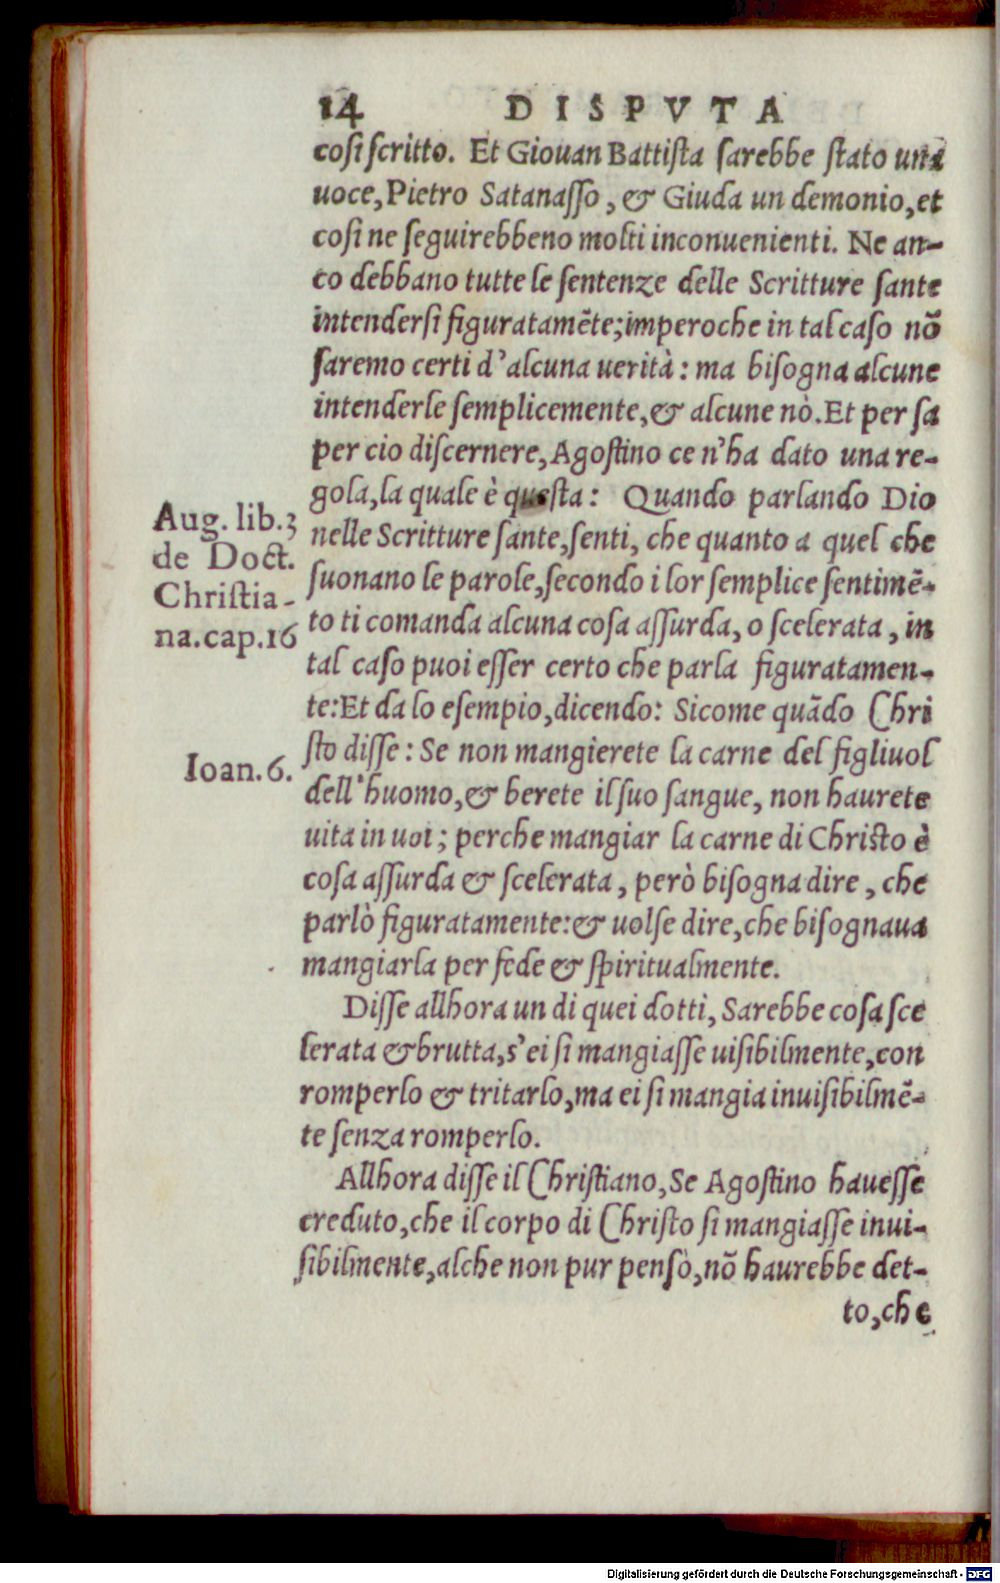 14 DISPVTA
cosi scritto. Et Giouan Battista sarebbe stato una
uoce, Pietro Satanasso, & Giuda un demonio, et
cosi ne seguirebbeno molti inconuenienti. Ne an-
co debbano tutte le sentenze delle Scritture sante
intendersi figuratamēte; imperoche in tal caso nō
saremo certi d'alcuna uerità: ma bisogna alcune
intenderle semplicemente, & alcune nò. Et per sa
per cio discernere, Agostino ce n'ha dato una re-
gola, la quale è questa: Quando parlando Dio
Aug. lib.3
nelle Scritture sante, senti, che quanto a quel che
de Doct.
suonano le parole, secondo i lor semplice sentimē-
Christia-
to ti comanda alcuna cosa assurda, o scelerata, in
na.cap.16
tal caso puoi esser certo che parla figuratamen-
te: Et da lo esempio, dicendo: Sicome quādo Chri
sto disse: Se non mangierete la carne del figliuol
Ioan.6.
dell'huomo, & berete il suo sangue, non haurete
uita in uoi; perche mangiar la carne di Christo è
cosa assurda & scelerata, però bisogna dire, che
parlò figuratamente: & uolse dire, che bisognaua
mangiarla per fede & spiritualmente.
Disse allhora un di quei dotti, Sarebbe cosa sce
lerata & brutta, s'ei si mangiasse uisibilmente, con
romperlo & tritarlo, ma ei si mangia inuisibilmē-
te senza romperlo.
Allhora disse il Christiano, Se Agostino hauesse
creduto, che il corpo di Christo si mangiasse inui-
sibilmente, alche non pur pensò, nō haurebbe det-
to, che
Digitalisierung gefördert durch die Deutsche Forschungsgemeinschaft - DFG